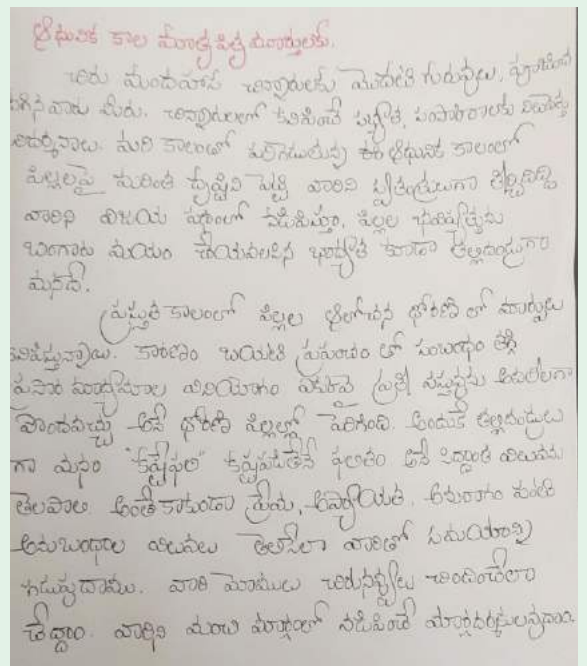 ఆధునిక కాల మాతృ పితృ మూర్తులకు.
చిరు మందహాస చిన్నారులకు మొదటి గురువులు, పూజింప
దగినవారు మీరు. చిన్నారులలో కనిపించే సభ్యత, సంస్కారాలకు
నిదర్శనాలు. మరి కాలంతో పరిగెడుతున్న ఈ ఆధునిక కాలంలో
పిల్లలపై మరింత దృష్టిని పెట్టి వారిని స్వతంత్రులుగా తీర్చిదిద్ది
వారిని విజయ పథంలో నడిపిస్తూ, పిల్లల భవిష్యత్తును
బంగారు మయం చేయవలసిన బాధ్యత కూడా తల్లిదండ్రులుగా
మనదే.
ప్రస్తుత కాలంలో పిల్లల ఆలోచన ధోరణి లో మార్పులు
కనిపిస్తున్నాయి. కారణం బయటి ప్రపంచం తో సంబంధం తగ్గి
ప్రసార మాధ్యమాల వినియోగం ఎక్కువై ప్రతీ వస్తువును అవలీలగా
పొందవచ్చు అనే ధోరణి పిల్లల్లో పెరిగింది. అందుకే తల్లిదండ్రులు
గా మనం "కష్టేఫలి" కష్టపడితేనే ఫలితం అనే సిద్ధాంత విలువను
తెలపాలి అంతే కాకుండా ప్రేమ, ఆప్యాయత, అనురాగం వంటి
అనుబంధాల విలువలు తెలిసేలా వారితో సమయాన్ని
గడుపుదాము. వారి మోములు చిరునవ్వులు చిందించేలా
చేద్దాం. వారిని మంచి మార్గంలో నడిపించే మార్గదర్శకులవుదాం.